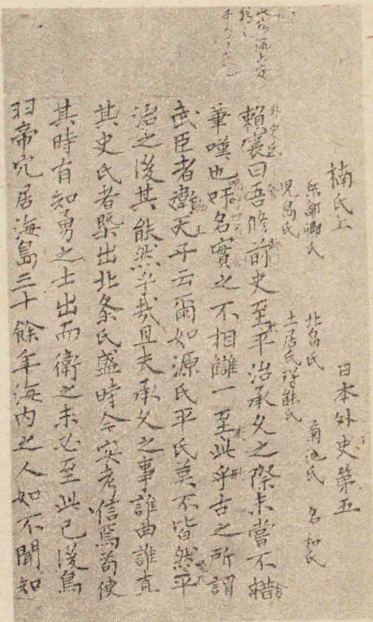 楠氏上 日本外史第五
兵部卿氏 北畠氏 菊池氏 名和氏
児島氏 土居氏得能氏
賴襄曰吾修前史至平治承久之際未嘗不輟
筆嘆也吁名實之不相讎一至此乎古之所謂
武臣者衛天子云爾如源氏平氏莫不皆然平
治之後其能然乎哉且夫承久之事誰曲誰直
其史氏者槩出北条氏盛時今安考信焉苟使
其時有知勇之士出而衛之未必至此已後鳥
羽帝穴居海島三十餘年海内之人如不聞知